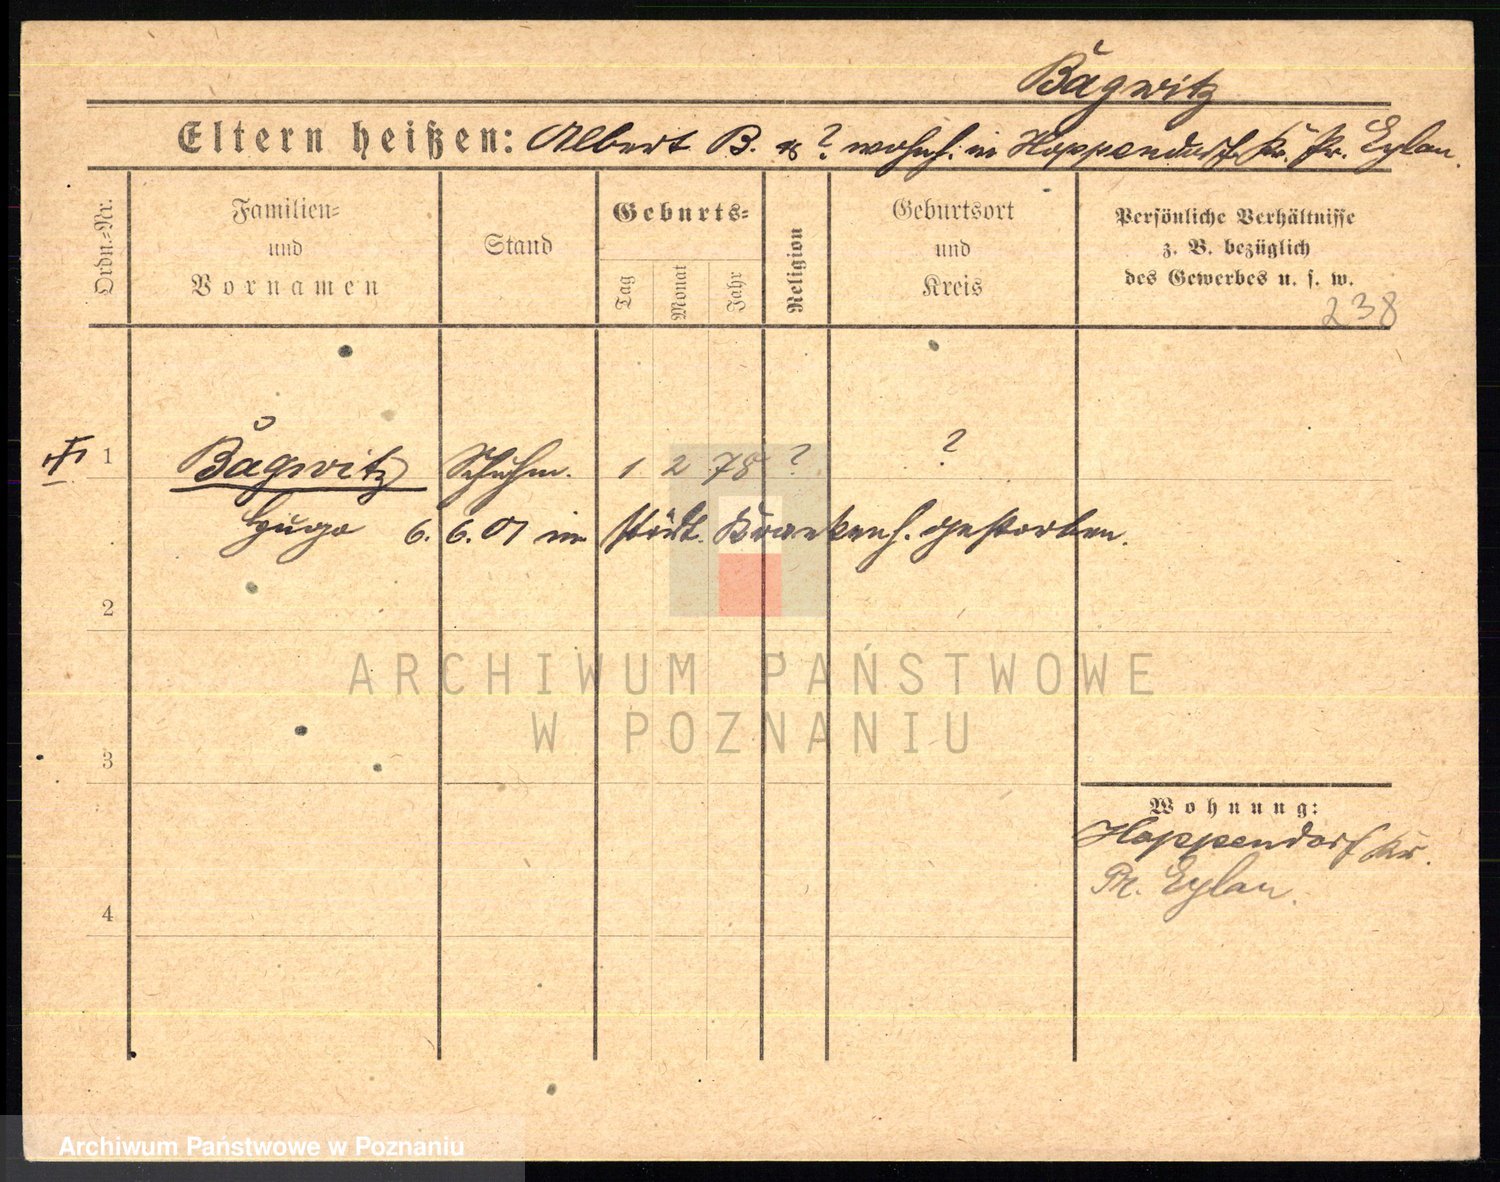 Bagwitz
Eltern heißen: Albert B. u ? wohnh. in Hoppendorf Kr. Pr. Eylau.
Ordn.-Nr.
Familien-
und
Vornamen
Stand
Geburts-
Tag
Monat
Jahr
Religion
Geburtsort
und
Kreis
Persönliche Verhältnisse
z. B. bezüglich
des Gewerbes u. s. w.
238
1 Bagwitz Schuhm. 1 2 78 ? ?
Hugo 6. 6. 01 im städt. Krankenh. gestorben.
2
ARCHIWUM PAŃSTWOWE
W POZNANIU
3
Wohnung:
Hoppendorf Kr.
Pr. Eylau.
4
Archiwum Państwowe w Poznaniu